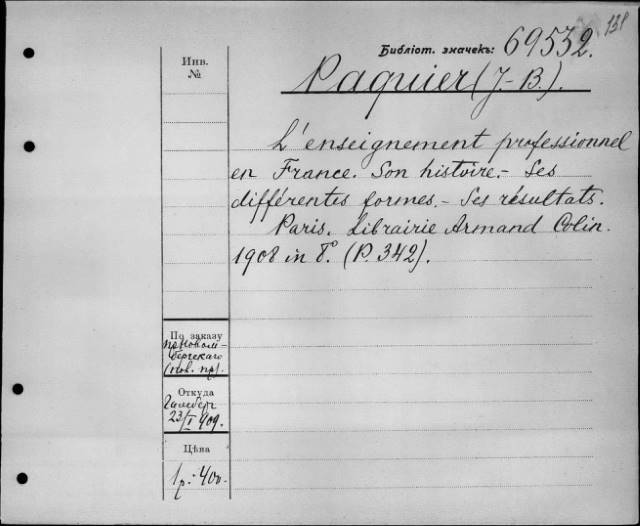 131
Библіот. значекъ: 69532.
Инв.
№
Paquier (J.-B.).
L'enseignement professionnel
en France. Son histoire. - Ses
différentes formes. - Ses résultats.
Paris. Librairie Armand Colin.
1908 in 8°. (P. 342).
По заказу
(нов. пр).
Откуда
23/I 909.
Цѣна
1р.-40к.